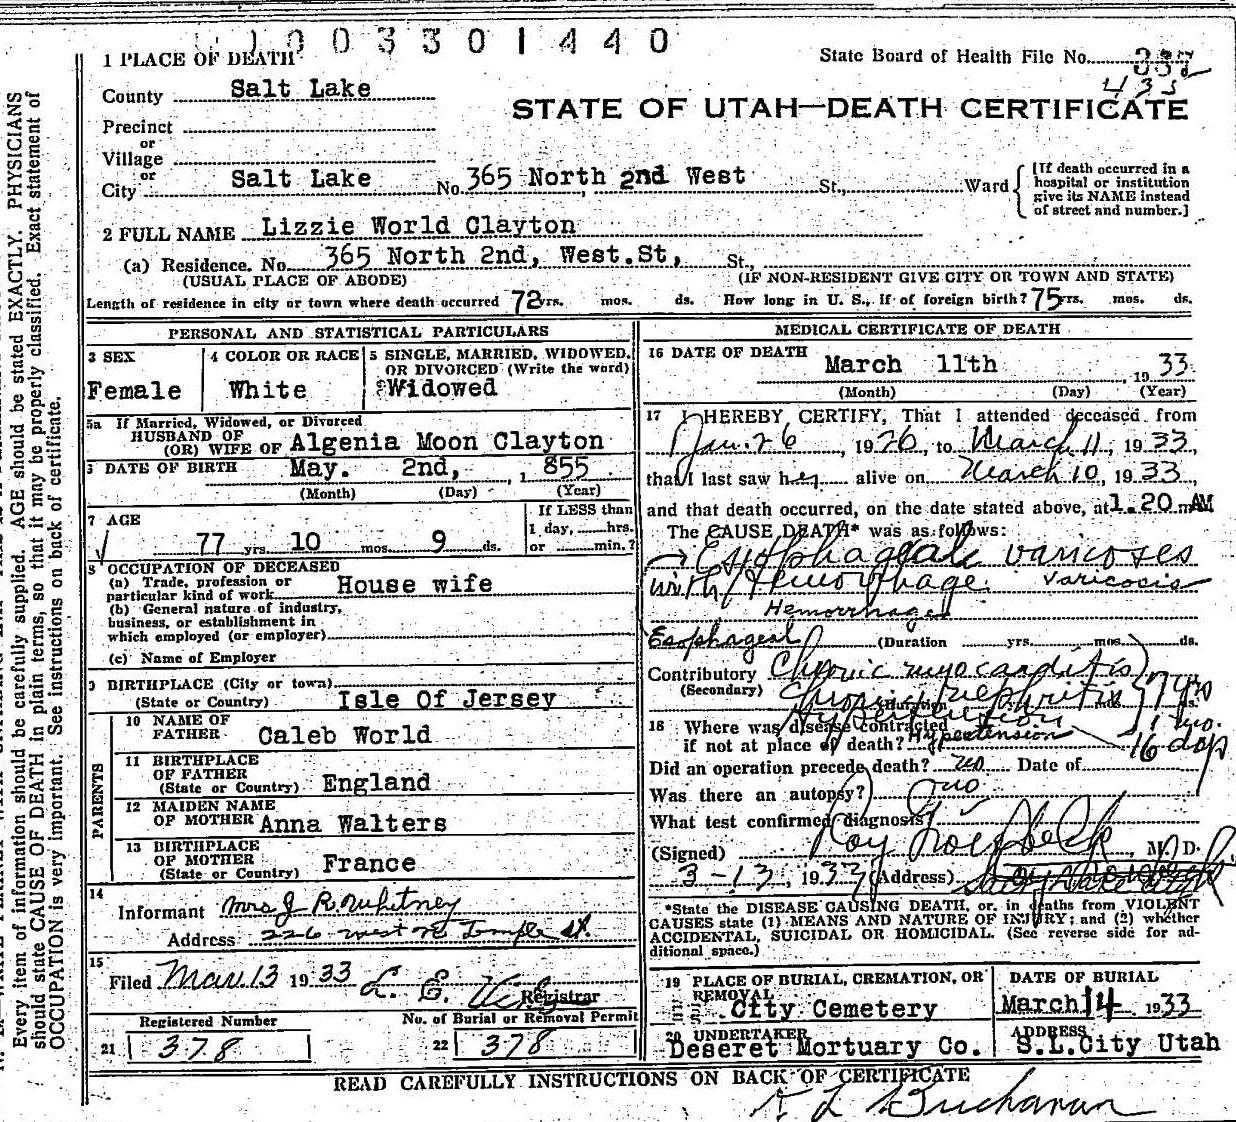 0 0 3 3 0 1 4 4 0
1 PLACE OF DEATH
State Board of Health File No.
435
County Salt Lake
STATE OF UTAH—DEATH CERTIFICATE
Precinct
or
Village
or
City Salt Lake No. 365 North 2nd West St., Ward
[If death occurred in a
hospital or institution
give its NAME instead
of street and number.]
2 FULL NAME Lizzie World Clayton
(a) Residence. No. 365 North 2nd, West.St, St.,
(USUAL PLACE OF ABODE) (IF NON-RESIDENT GIVE CITY OR TOWN AND STATE)
Length of residence in city or town where death occurred 72 yrs. mos. ds. How long in U. S., if of foreign birth? 75 yrs. mos. ds.
PERSONAL AND STATISTICAL PARTICULARS
3 SEX
Female
4 COLOR OR RACE
White
5 SINGLE, MARRIED, WIDOWED,
OR DIVORCED (Write the word)
Widowed
5a If Married, Widowed, or Divorced
HUSBAND OF
(OR) WIFE OF Algenia Moon Clayton
DATE OF BIRTH May. 2nd, 1855
(Month) (Day) (Year)
7 AGE
77 yrs. 10 mos. 9 ds.
If LESS than
1 day, hrs.
or min.?
8 OCCUPATION OF DECEASED
(a) Trade, profession or
particular kind of work House wife
(b) General nature of industry,
business, or establishment in
which employed (or employer)
(c) Name of Employer
9 BIRTHPLACE (City or town)
(State or Country) Isle Of Jersey
PARENTS
10 NAME OF
FATHER Caleb World
11 BIRTHPLACE
OF FATHER
(State or Country) England
12 MAIDEN NAME
OF MOTHER Anna Walters
13 BIRTHPLACE
OF MOTHER
(State or Country) France
14
Informant Mrs J R Whitney
Address 226 West No Temple St.
15
Filed Mar. 13 1933 L. E. Registrar
Registered Number
21 378
No. of Burial or Removal Permit
22 378
MEDICAL CERTIFICATE OF DEATH
16 DATE OF DEATH
March 11th, 1933
(Month) (Day) (Year)
17 I HEREBY CERTIFY, That I attended deceased from
Jan. 26 1926, to March 11, 1933,
that I last saw her alive on March 10, 1933,
and that death occurred, on the date stated above, at 1.20 m AM
The CAUSE DEATH* was as follows:
Esophageal varicoses
with Hemorrhage. Varicosis
Hemorrhage
Esophageal (Duration yrs. mos. ds.
Contributory Chronic myocarditis
(Secondary) Chronic nephritis 7 yrs
(Duration mos. ds.
Hypertension
18 Where was disease contracted
if not at place of death? Hypertension 16 days
Did an operation precede death? no Date of
Was there an autopsy? no
What test confirmed diagnosis?
(Signed) Roy M. D.
3-13, 1933 (Address) Salt Lake City
*State the DISEASE CAUSING DEATH, or, in deaths from VIOLENT
CAUSES state (1) MEANS AND NATURE OF INJURY; and (2) whether
ACCIDENTAL, SUICIDAL OR HOMICIDAL. (See reverse side for ad-
ditional space.)
19 PLACE OF BURIAL, CREMATION, OR
REMOVAL
City Cemetery
DATE OF BURIAL
March 14 1933
20 UNDERTAKER
Deseret Mortuary Co.
ADDRESS
S.L.City Utah
READ CAREFULLY INSTRUCTIONS ON BACK OF CERTIFICATE
Buchanan
Every item of information should be carefully supplied. AGE should be stated EXACTLY. PHYSICIANS
should state CAUSE OF DEATH in plain terms, so that it may be properly classified. Exact statement of
OCCUPATION is very important. See instructions on back of certificate.